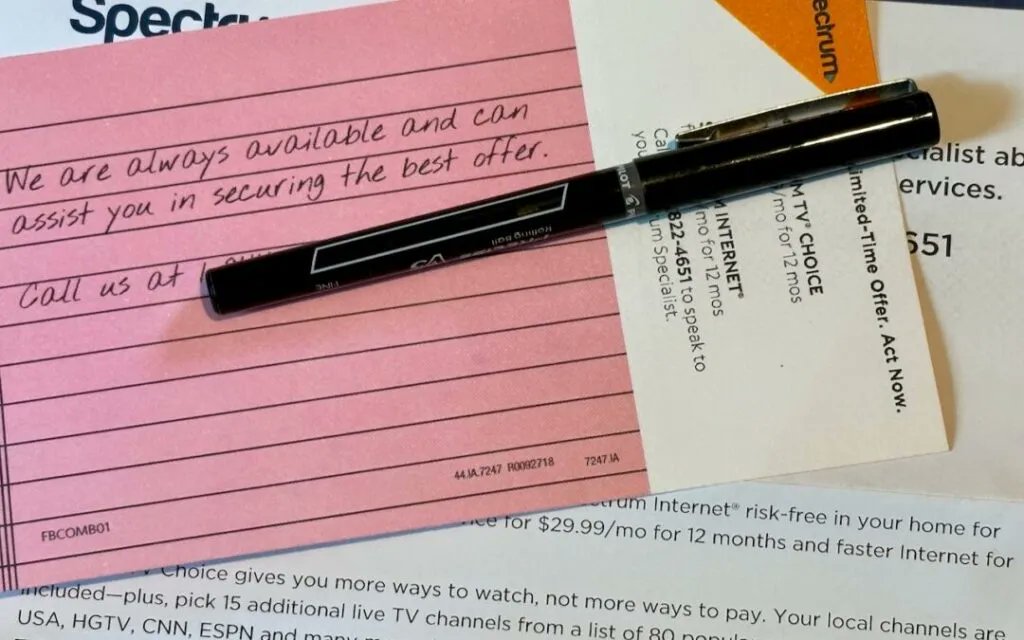 Spectru
We are always available and can
assist you in securing the best offer.
Call us at
44.IA.7247 R0092718 7247.IA
FBCOMB01
ectrum
Limited-Time Offer. Act Now.
M TV® CHOICE
/mo for 12 mos
M INTERNET®
mo for 12 mos
822-4651 to speak to
um Specialist.
Rolling Ball
FINE
ialist ab
ervices.
651
trum Internet® risk-free in your home for
ce for $29.99/mo for 12 months and faster Internet for
Choice gives you more ways to watch, not more ways to pay. Your local channels are
included—plus, pick 15 additional live TV channels from a list of 80
USA, HGTV, CNN, ESPN and many